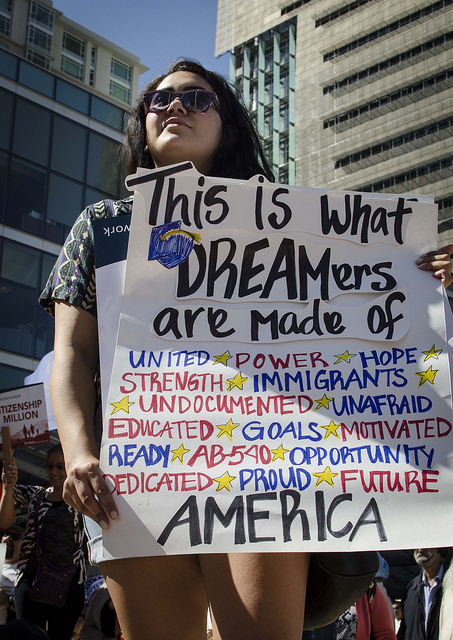 This is what
DREAMers
are made of
UNITED POWER HOPE
STRENGTH IMMIGRANTS
UNDOCUMENTED UNAFRAID
EDUCATED GOALS MOTIVATED
READY AB-540 OPPORTUNITY
DEDICATED PROUD FUTURE
AMERICA
work
TIZENSHIP
MILLION